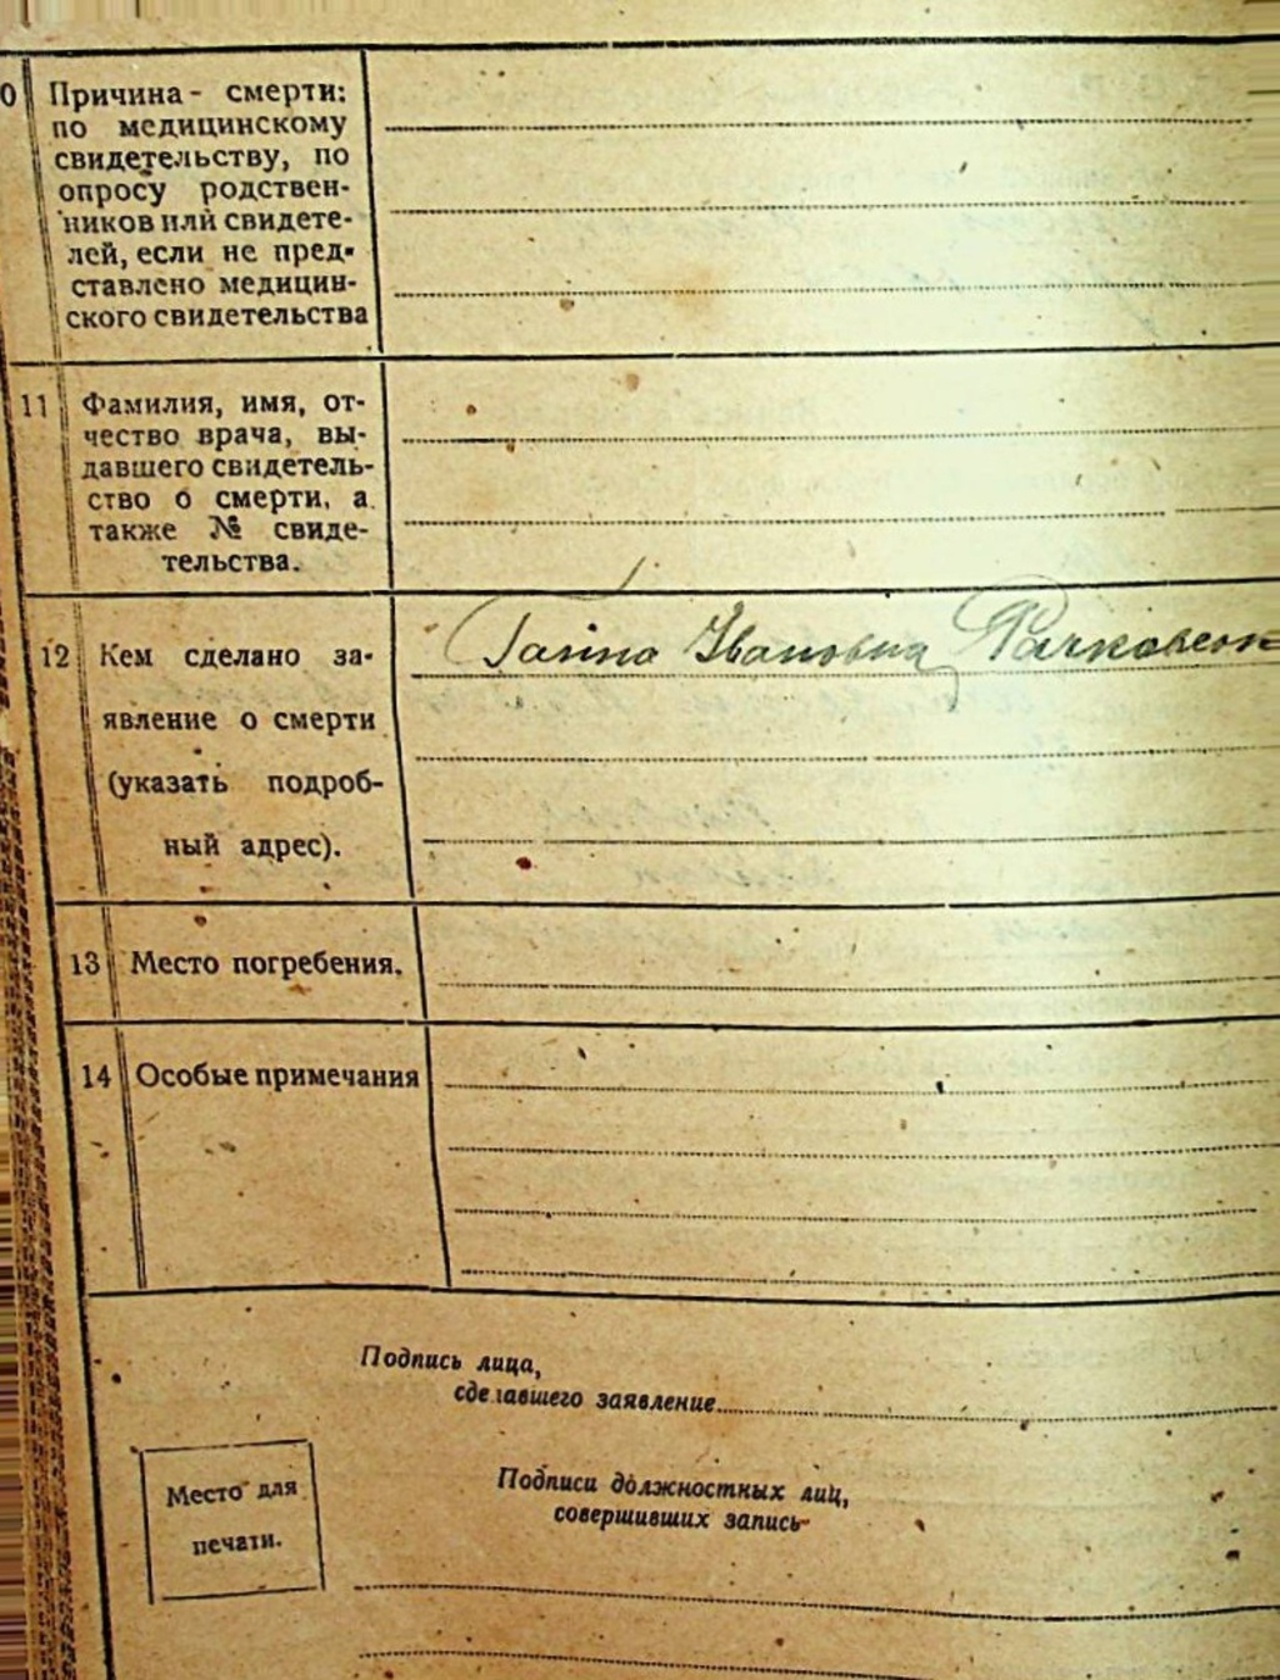 0 Причина - смерти:
по медицинскому
свидетельству, по
опросу родствен-
ников или свидете-
лей, если не пред-
ставлено медицин-
ского свидетельства
11 Фамилия, имя, от-
чество врача, вы-
давшего свидетель-
ство о смерти, а
также № свиде-
тельства.
12 Кем сделано за-
явление о смерти
(указать подроб-
ный адрес).
Ивановна
13 Место погребения.
14 Особые примечания
Подпись лица,
сделавшего заявление
Место для
печати.
Подписи должностных лиц,
совершивших запись